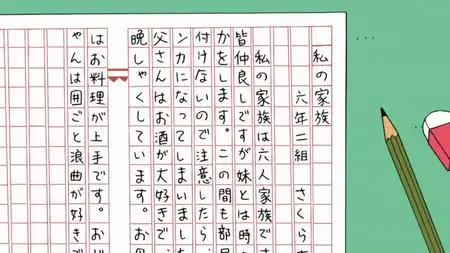 私の家族
六年二組　さくら
私の家族は六人家族で
皆仲良しですが妹とは時
かをします。この間も部
付けないので注意したら、
ンカになってしまいまし
父さんはお酒が大好きで、
晩しゃくしています。お
はお料理が上手です。おじ
ゃんは囲ごと浪曲が好き